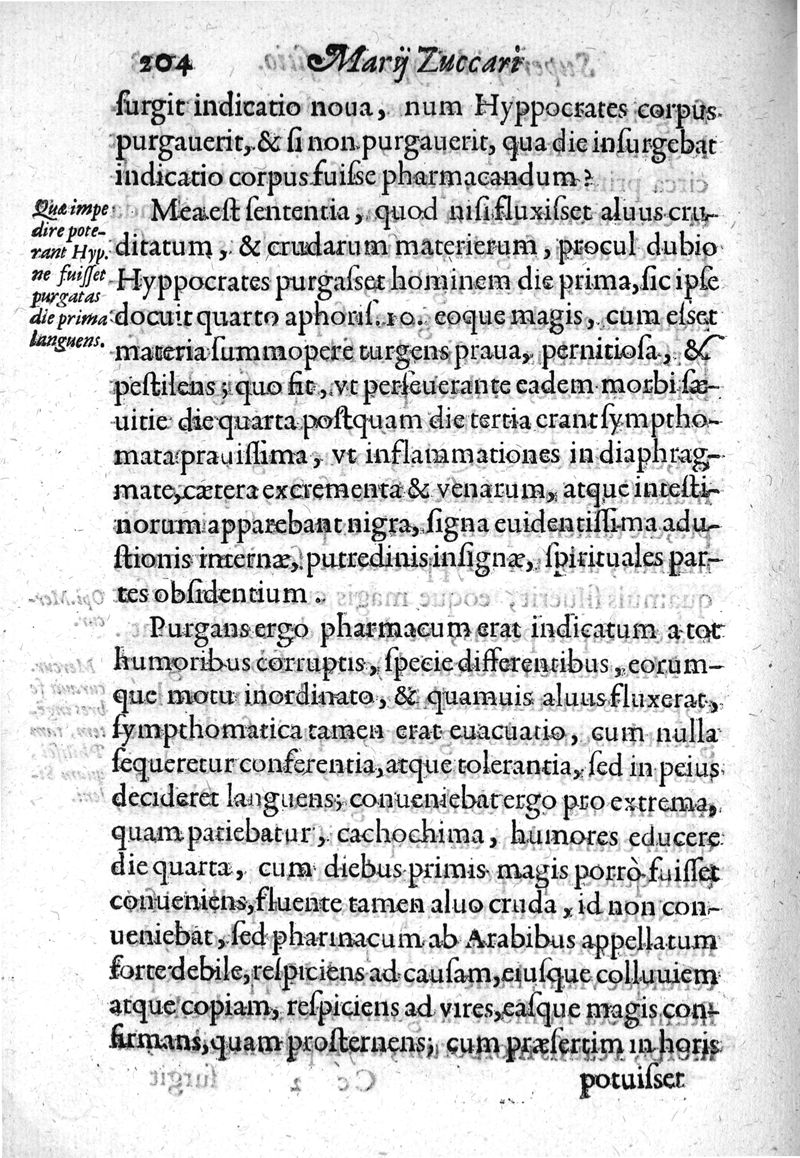 204 Marij Zuccari
ſurgit indicatio noua, num Hyppocrates corpus
purgauerit, & ſi non purgauerit, qua die inſurgebat
indicatio corpus fuiſse pharmacandum?
Quæ impe
dire pote-
rant Hyp.
ne fuiſſet
purgatas
die prima
languens.
Mea eſt ſententia, quod niſi fluxiſset aluus cru-
ditatum, & crudarum materierum, procul dubio
Hyppocrates purgaſset hominem die prima, ſic ipſe
docuit quarto aphoriſ. 10. eoque magis, cum eſset
materia ſummopere turgens praua, pernitioſa, &
peſtilens; quo fit, vt perſeuerante eadem morbi ſæ-
uitie die quarta poſtquam die tertia erant ſymptho-
mata prauiſſima, vt inflammationes in diaphrag-
mate, cætera excrementa & venarum, atque inteſti-
norum apparebant nigra, ſigna euidentiſſima adu-
ſtionis internæ, putredinis inſignæ, ſpirituales par-
tes obſidentium.
Purgans ergo pharmacum erat indicatum a tot
humoribus corruptis, ſpecie differentibus, eorum-
que motu inordinato, & quamuis aluus fluxerat,
ſympthomatica tamen erat euacuatio, cum nulla
ſequeretur conferentia, atque tolerantia, ſed in peius
decideret languens; conueniebat ergo pro extrema,
quam patiebatur, cachochima, humores educere
die quarta, cum diebus primis magis porrò fuiſſet
conueniens, fluente tamen aluo cruda, id non con-
ueniebat, ſed pharmacum ab Arabibus appellatum
forte debile, reſpiciens ad cauſam, eiuſque colluuiem
atque copiam, reſpiciens ad vires, eaſque magis con-
firmans, quam proſternens; cum præſertim in horis
potuiſset